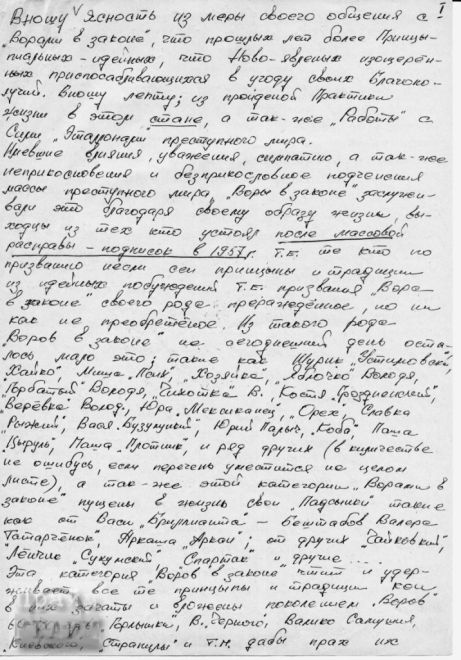 I
Вношу ясность из меры своего общения с
"Ворами в законе", что прошлых лет более Принци-
пиальных-идейных, что Ново-явленых изощерён-
ных приспосабливающихся в угоду своих Благопо-
лучий. Вношу лепту; из пройденой Практики
жизни в этом стане, а так-же "Работы" с
Сими "Эталонами" преступного мира.
Имевшие влияния, уважения, симпатию, а так-же
неприкосновения и безприкословное подчинения
массы преступного мира "Воры в законе" заслужи-
вали это благодаря своему образу жизни, вы-
ходцы из тех кто устоял после массовой
расправы - подписок в 1957г. Т.Е. те кто по
призванию несли сеи принцыпы и традиции
из идейных побуждений т.е. призвания "Вора
в законе" своего рода прерождённое, но ни
как не преобретёное. Из такого рода
"Воров в законе" на сегоднешний день оста-
лось мало это; такие как Шурик "Устимовский",
"Хайко", Миша "Паик", "Хозяйка", "Яблочко" Володя,
"Горбатый" Володя, "Чихотка" В. Костя "Грозненский",
"Верёвка" Волод., Юра "Мексиканец", "Орех", Славка
"Рыжий", Вася "Бузулуцкий", Юрий Палыч, "Коба" Паша
"Цыруль", Паша "Плотник", и ряд других (в киличестве
не ошибусь, если перечень уместится на целом
листе), а так-же этой категории "Ворами в
законе" пущены в жизнь свои "Пацсыны" такие
как от Васи "Бриллианта" - Бештабов Валера
"Татарчёнок" Аркаша "Аркан"; от других "Чайковский",
Лёнчик "Сухумский" "Спартак" и другие ....
Эта категория "Воров в законе" чтит и удер-
живает все те принцыпы и традиции кои
в них зачаты и вложены поколением "Воров"
"Горлышка", В. "Чёрного", Валико Самушия,
"Киевского", "Страпулы" и т.п. дабы прах их